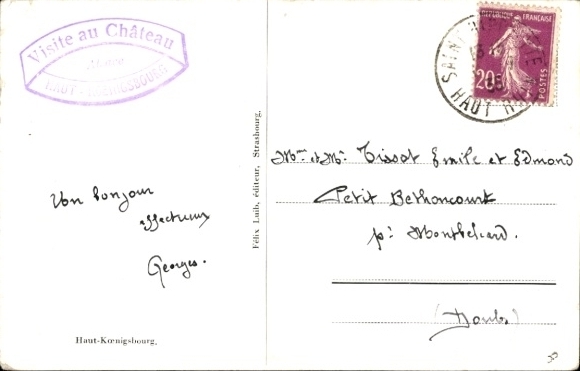 Visite au Château
HAUT-KŒNIGSBOURG
Un bonjour
affectueux
Georges.
Haut-Kœnigsbourg.
Félix Luib, éditeur, Strasbourg.
REPUBLIQUE FRANÇAISE
20c
POSTES
SAINT HIPPOLYTE
HAUT RHIN
Mme et Mr. Tissot Emile et Edmond
Petit Bethoncourt
pr Montbeliard.
(Doubs)